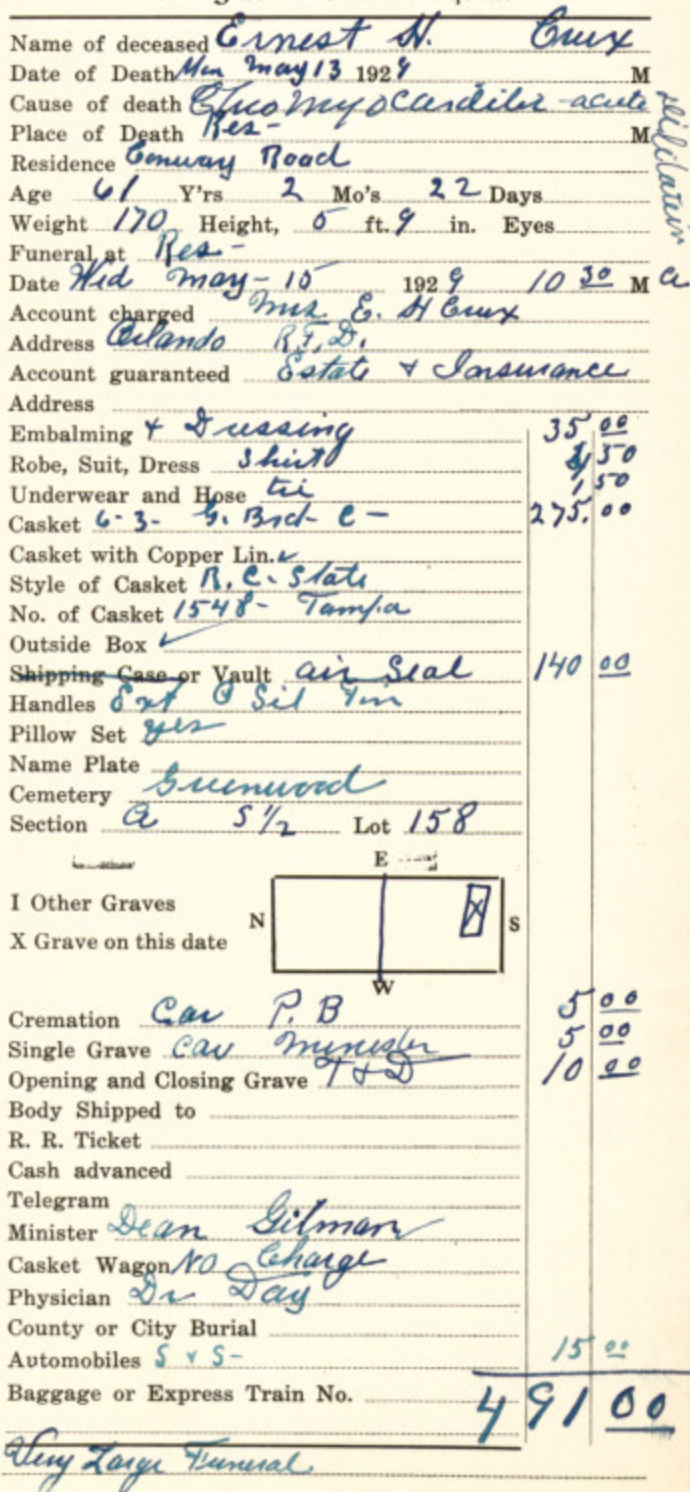 Name of deceased Ernest H. Crux
Date of Death Mon May 13 1929 M
Cause of death Chro Myocarditis - acute
dilitation
Place of Death Res- M
Residence Conway Road
Age 61 Y'rs 2 Mo's 22 Days
Weight 170 Height, 5 ft. 9 in. Eyes
Funeral at Res-
Date Wed May - 15 1929 10 30 M a
Account charged Mrs E. H Crux
Address Orlando R.F.D.
Account guaranteed Estate + Insurance
Address
Embalming + Dressing 35 00
Robe, Suit, Dress Shirt 50
Underwear and Hose tie 1 50
Casket 6-3- G. Brd- C- 275. 00
Casket with Copper Lin. ✓
Style of Casket R. C. State
No. of Casket 1548- Tampa
Outside Box ✓
Shipping Case or Vault air Seal 140 00
Handles Ext Sil
Pillow Set yes
Name Plate
Cemetery Greenwood
Section A S 1/2 Lot 158
E
I Other Graves
N X S
X Grave on this date
W
Cremation Car P. B 5 00
Single Grave Car Minester 5 00
Opening and Closing Grave T & D 10 00
Body Shipped to
R. R. Ticket
Cash advanced
Telegram
Minister Dean Gilman
Casket Wagon NO Charge
Physician Dr Day
County or City Burial
Automobiles 5 + 5- 15 00
Baggage or Express Train No. 491 00
Very Large Funeral